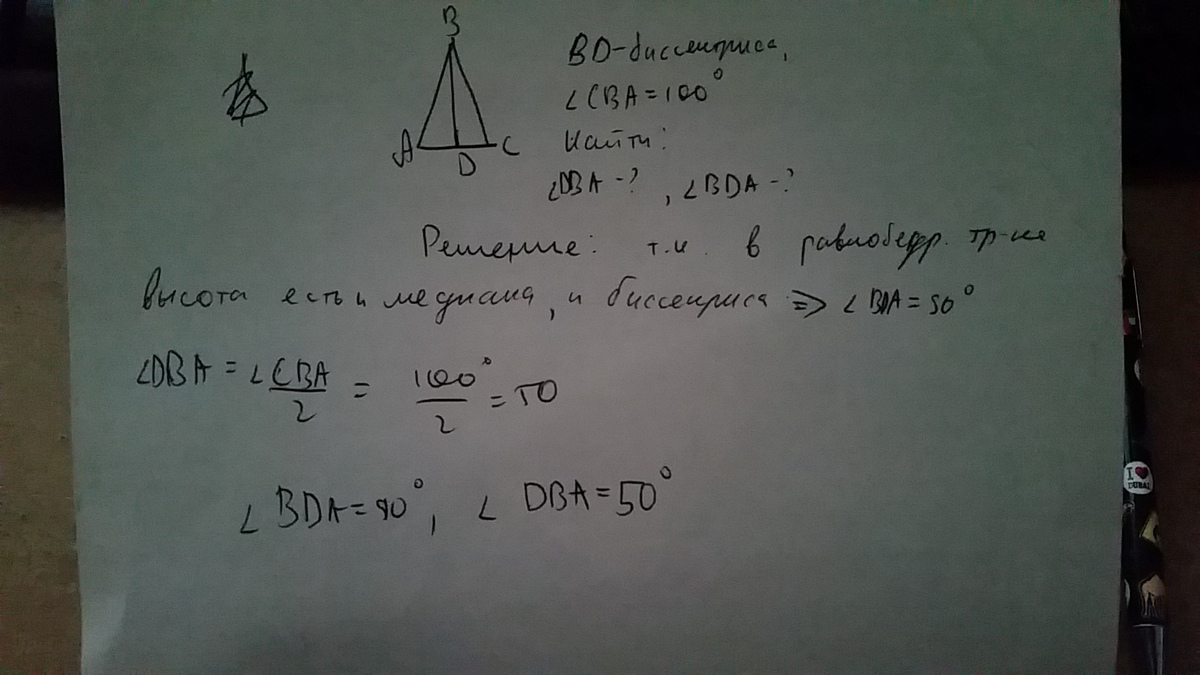 B
A
D
C
BD-биссектриса,
∠CBA = 100°
Найти:
∠DBA -? , ∠BDA -?
Решение: т.к. в равнобедр. тр-ке
высота есть и медиана, и биссектриса => ∠BDA = 90°
∠DBA = ∠CBA/2 = 100°/2 = 50
∠BDA = 90°, ∠DBA = 50°
I ❤ DUBAI